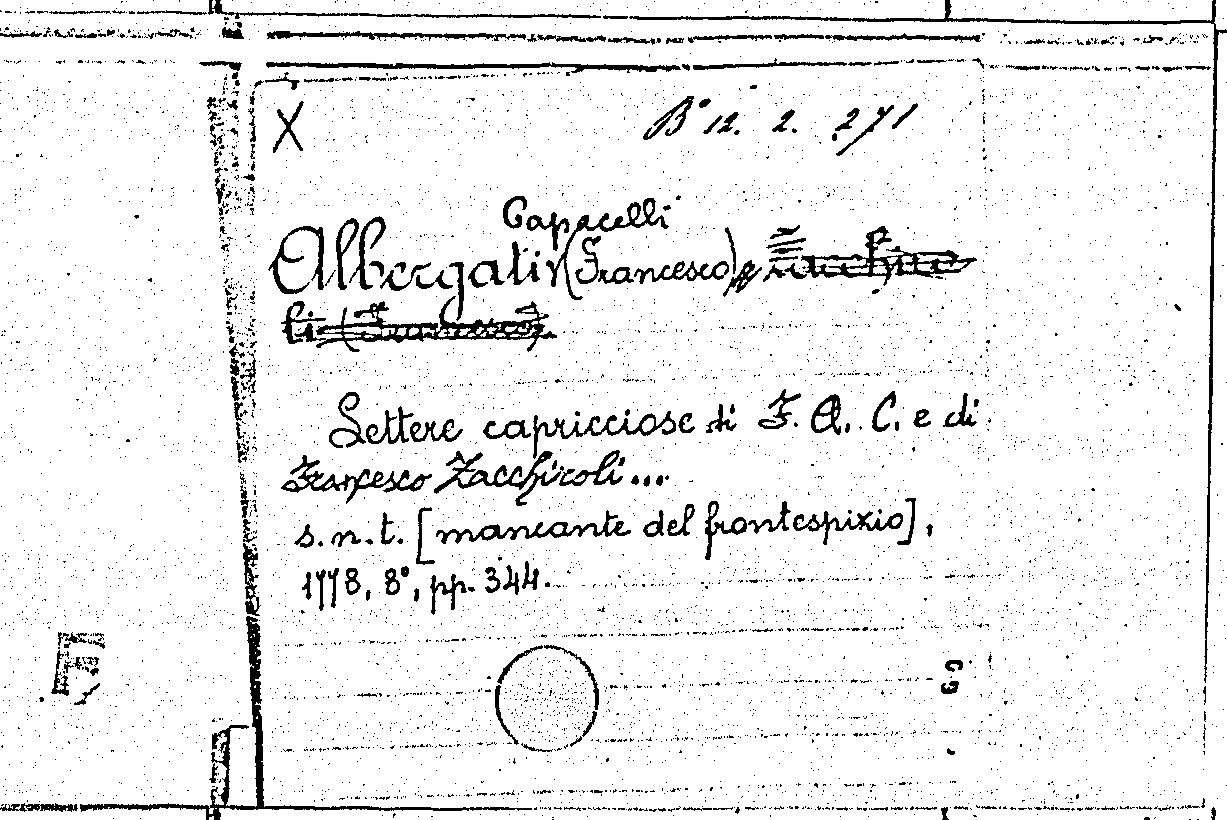 X
B° 12. 2. 271
Capacelli
Albergati (Francesco)
Lettere capricciose di F. A. C. e di
Francesco Zacchiroli...
s.n.t. [mancante del frontespizio],
1778, 8°, pp. 344.